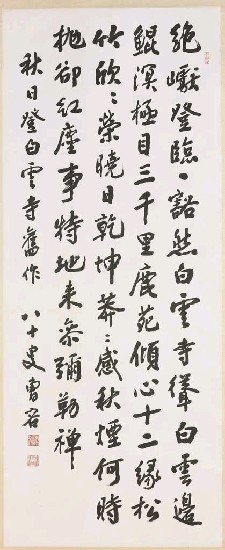 絕巘登臨一豁然白雲寺聳白雲邊
鯤溟極目三千里鹿苑傾心十二緣松
竹欣〻榮曉日乾坤莽〻感秋煙何時
拋卻紅塵事特地来參彌勒禪
秋日登白雲寺舊作 八十叟曹容